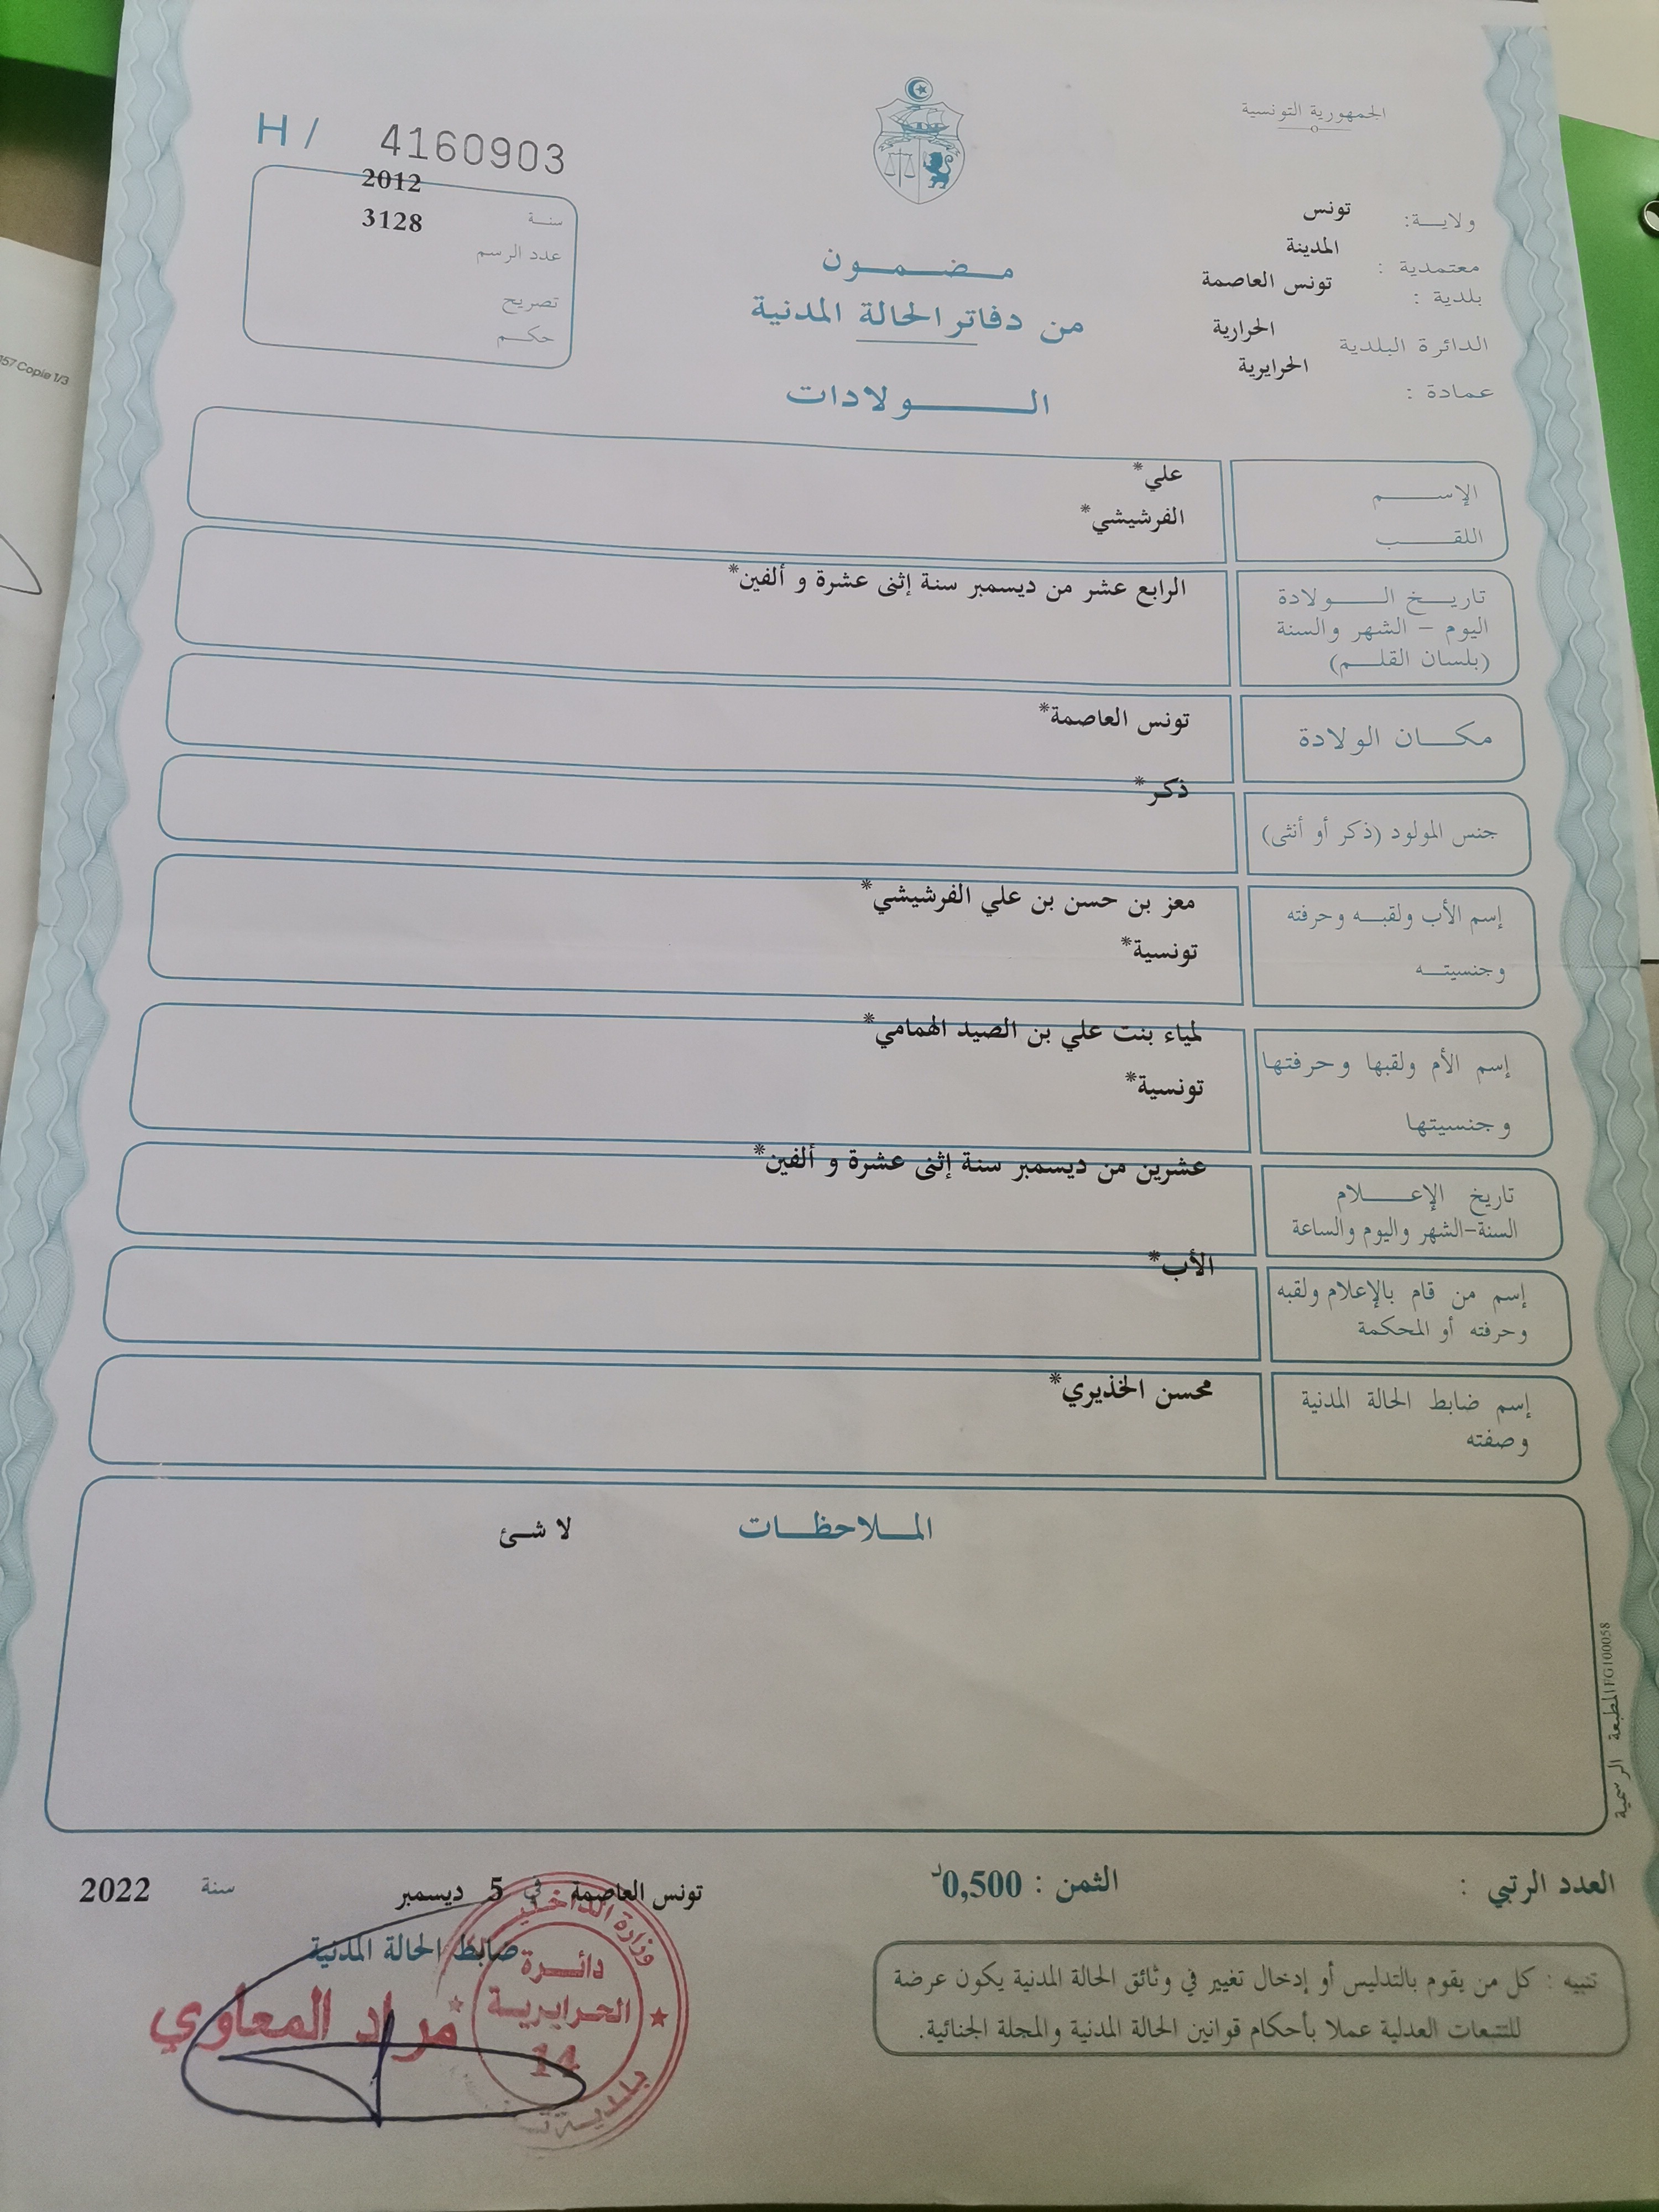 الجمهورية التونسية
H / 4160903
2012
سنة
3128
عدد الرسم
تصريح
حكم
ولاية: تونس
معتمدية : المدينة
بلدية : تونس العاصمة
الدائرة البلدية الحرارية
عمادة : الحرايرية
مضمون
من دفاتر الحالة المدنية
الولادات
الإسم علي*
اللقب الفرشيشي*
تاريخ الولادة الرابع عشر من ديسمبر سنة إثنى عشرة و ألفين*
اليوم - الشهر والسنة
(بلسان القلم)
مكان الولادة تونس العاصمة*
جنس المولود (ذكر أو أنثى) ذكر*
إسم الأب ولقبه وحرفته معز بن حسن بن علي الفرشيشي*
وجنسيته تونسية*
إسم الأم ولقبها وحرفتها لمياء بنت علي بن الصيد الهمامي*
وجنسيتها تونسية*
تاريخ الإعلام عشرين من ديسمبر سنة إثنى عشرة و ألفين*
السنة-الشهر واليوم والساعة
إسم من قام بالإعلام ولقبه الأب*
وحرفته أو المحكمة
إسم ضابط الحالة المدنية محسن الخذيري*
وصفته
الملاحظات لا شئ
المطبعة الرسمية FG100058
العدد الرتبي : الثمن : 0,500د
تونس العاصمة في 5 ديسمبر سنة 2022
ضابط الحالة المدنية
مراد المعاوي
وزارة الداخلية
دائرة
الحرايرية
14
بلدية
تنبيه : كل من يقوم بالتدليس أو إدخال تغيير في وثائق الحالة المدنية يكون عرضة
للتتبعات العدلية عملا بأحكام قوانين الحالة المدنية والمجلة الجنائية.
157 Copie 1/3